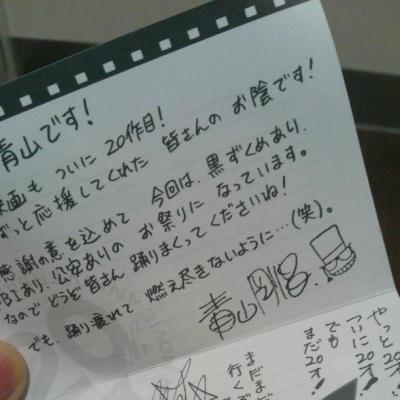 青山です!
映画も ついに 20作目!
ずっと応援してくれた 皆さんの お陰です!
感謝の意を込めて 今回は、黒ずくめあり、
FBIあり、公安ありの お祭りに なっています。
なので どうぞ皆さん 踊りまくってくださいね!
でも、踊り疲れて 燃え尽きないように…(笑)。
青山剛昌
やっと20才!
ついに20才!
でも
まだ20才!
まだまだ
行くぞ